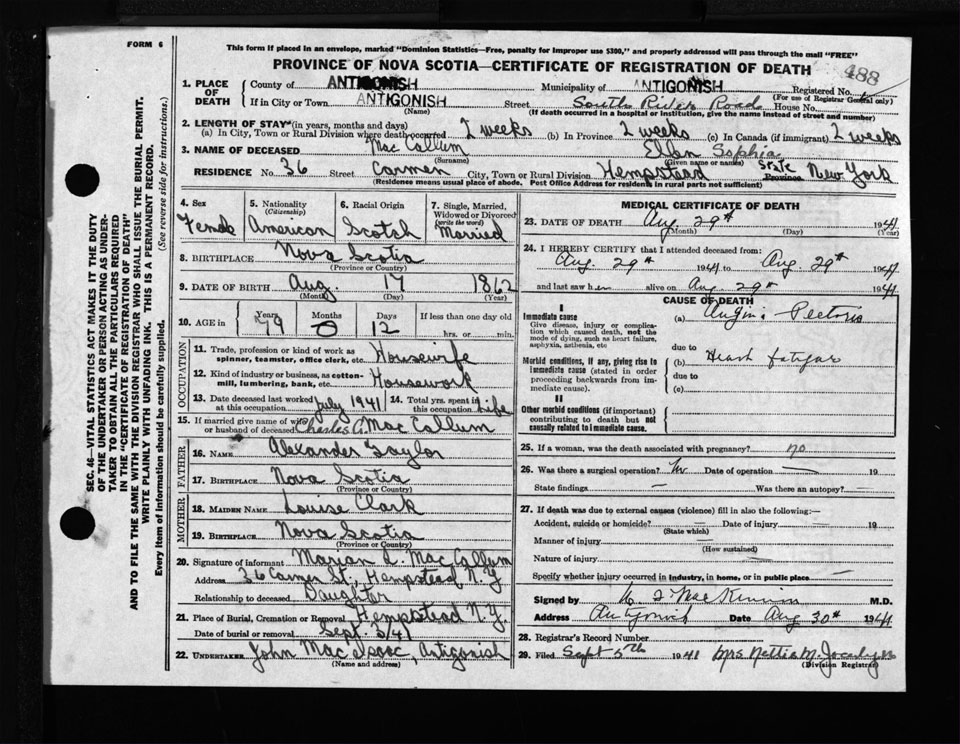 FORM 6
This form if placed in an envelope, marked "Dominion Statistics—Free, penalty for improper use $300," and properly addressed will pass through the mail "FREE"
PROVINCE OF NOVA SCOTIA—CERTIFICATE OF REGISTRATION OF DEATH
488
1. PLACE OF DEATH
County of ANTIGONISH Municipality of ANTIGONISH Registered No.
(For use of Registrar General only)
If in City or Town ANTIGONISH Street South River Road House No.
(Name) (If death occurred in a hospital or institution, give the name instead of street and number)
2. LENGTH OF STAY (in years, months and days)
(a) In City, Town or Rural Division where death occurred 2 weeks (b) In Province 2 weeks (c) In Canada (if immigrant) 2 weeks
3. NAME OF DECEASED Mac Callum Ellen Sophia
(Surname) (Given name or names)
RESIDENCE No. 36 Street Carmen City, Town or Rural Division Hempstead State Province New York
(Residence means usual place of abode. Post Office Address for residents in rural parts not sufficient)
4. Sex Female
5. Nationality (Citizenship) American
6. Racial Origin Scotch
7. Single, Married, Widowed or Divorced (write the word) Married
8. BIRTHPLACE Nova Scotia
(Province or Country)
9. DATE OF BIRTH Aug. 17 1862
(Month) (Day) (Year)
10. AGE in Years 79 Months 0 Days 12 If less than one day old
hrs. or min.
OCCUPATION
11. Trade, profession or kind of work as spinner, teamster, office clerk, etc. Housewife
12. Kind of industry or business, as cotton-mill, lumbering, bank, etc. Housework
13. Date deceased last worked at this occupation July 1941 14. Total yrs. spent in this occupation Life
15. If married give name of wife or husband of deceased Charles C. Mac Callum
FATHER
16. NAME Alexander Taylor
17. BIRTHPLACE Nova Scotia
(Province or Country)
MOTHER
18. MAIDEN NAME Louise Clark
19. BIRTHPLACE Nova Scotia
(Province or Country)
20. Signature of informant Marian L. Mac Callum
Address 36 Carmen St., Hempstead N.Y.
Relationship to deceased Daughter
21. Place of Burial, Cremation or Removal Hempstead N.Y.
Date of burial or removal Sept.
22. UNDERTAKER John Mac Isaac, Antigonish
(Name and address)
MEDICAL CERTIFICATE OF DEATH
23. DATE OF DEATH Aug. 29th 1941
(Month) (Day) (Year)
24. I HEREBY CERTIFY that I attended deceased from:
Aug. 29th 1941 to Aug. 29th 1941
and last saw her alive on Aug. 29th 1941
CAUSE OF DEATH
I
Immediate cause (a) Angina Pectoris
Give disease, injury or complication which caused death, not the mode of dying, such as heart failure, asphyxia, asthenia, etc
due to
Morbid conditions, if any, giving rise to immediate cause (stated in order proceeding backwards from immediate cause).
(b) Heart fatigue
due to
(c)
II
Other morbid conditions (if important) contributing to death but not causally related to immediate cause.
25. If a woman, was the death associated with pregnancy? no
26. Was there a surgical operation? No Date of operation — 19
State findings — Was there an autopsy? —
27. If death was due to external causes (violence) fill in also the following:—
Accident, suicide or homicide? — Date of injury — 19
(State which)
Manner of injury —
(How sustained)
Nature of injury —
Specify whether injury occurred in industry, in home, or in public place —
Signed by Mac Kinnon M.D.
Address Antigonish Date Aug 30th 1941
28. Registrar's Record Number
29. Filed Sept 5th 1941 Mrs Nettie M.
(Division Registrar)
SEC. 46—VITAL STATISTICS ACT MAKES IT THE DUTY
OF THE UNDERTAKER OR PERSON ACTING AS UNDER-
TAKER TO OBTAIN ALL THE PARTICULARS REQUIRED
IN THE "CERTIFICATE OF REGISTRATION OF DEATH"
AND TO FILE THE SAME WITH THE DIVISION REGISTRAR WHO SHALL ISSUE THE BURIAL PERMIT.
WRITE PLAINLY WITH UNFADING INK. THIS IS A PERMANENT RECORD.
Every item of information should be carefully supplied. (See reverse side for instructions.)